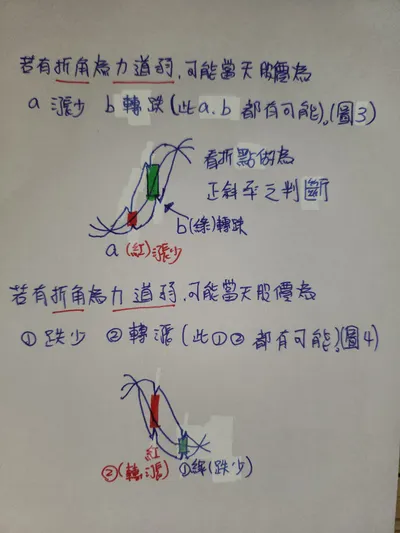 若有折角為力道弱,可能當天股價為
a 漲少 b 轉跌(此a.b 都有可能)。(圖3)
看折點做為
正斜率之判斷
b(綠)轉跌
a (紅)漲少
若有折角為力道弱,可能當天股價為
① 跌少 ② 轉漲 (此①② 都有可能。)(圖4)
紅
②(轉漲) ①綠(跌少)